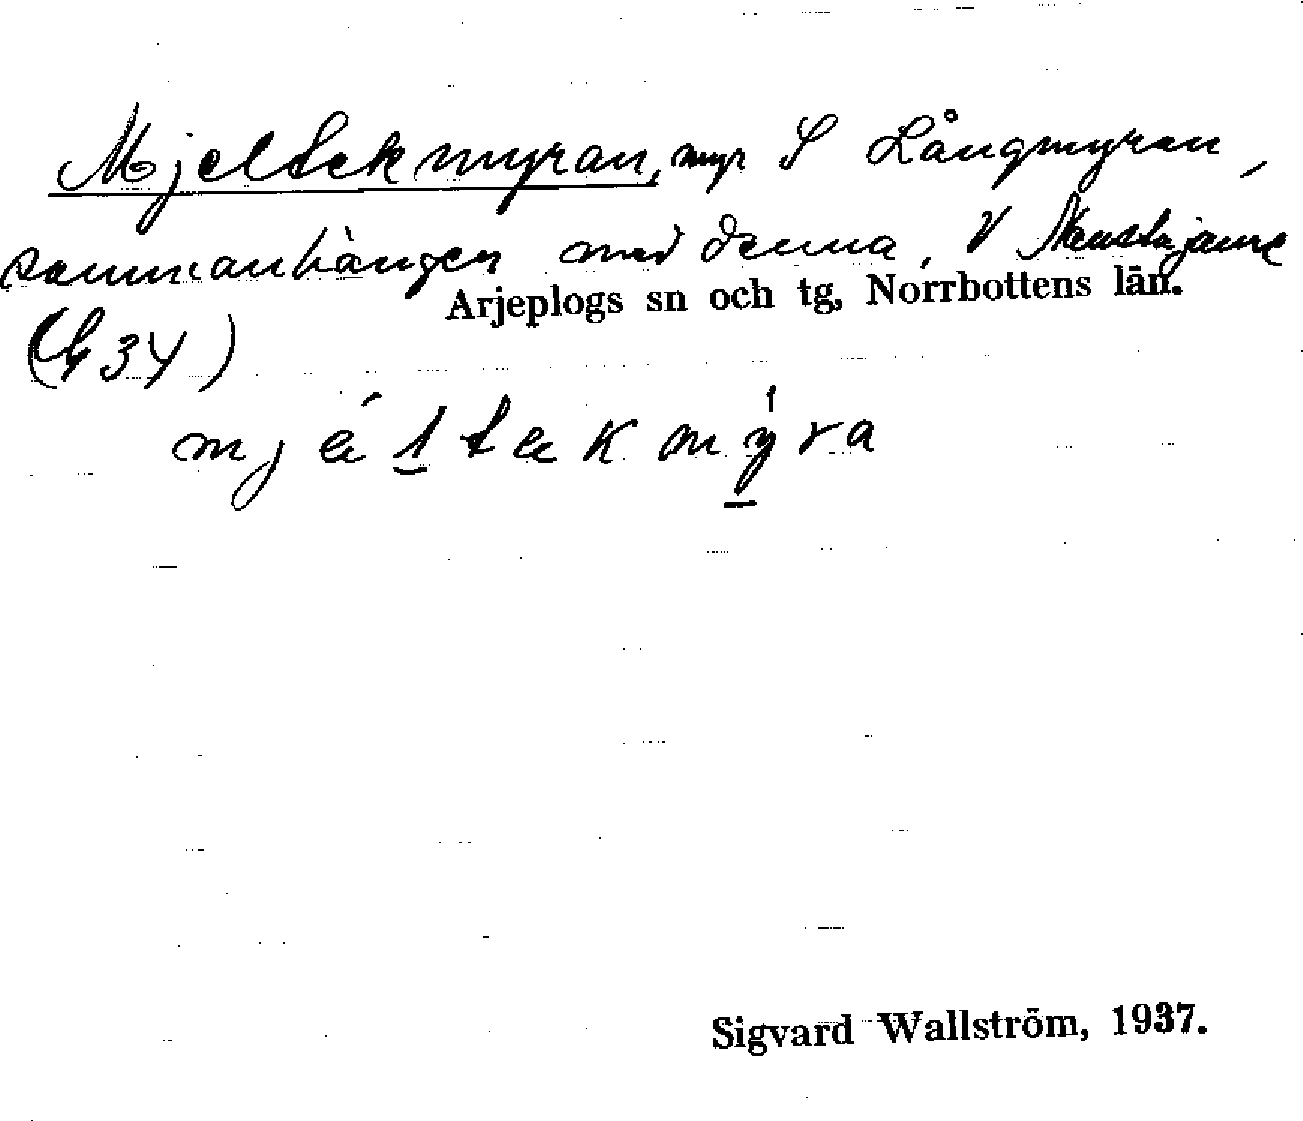 Mjeltekmyran, myr S Långmyran,
sammanhänger med denna, V
Arjeplogs sn och tg, Norrbottens län.
mjéltekmy̱ra
Sigvard Wallström, 1937.